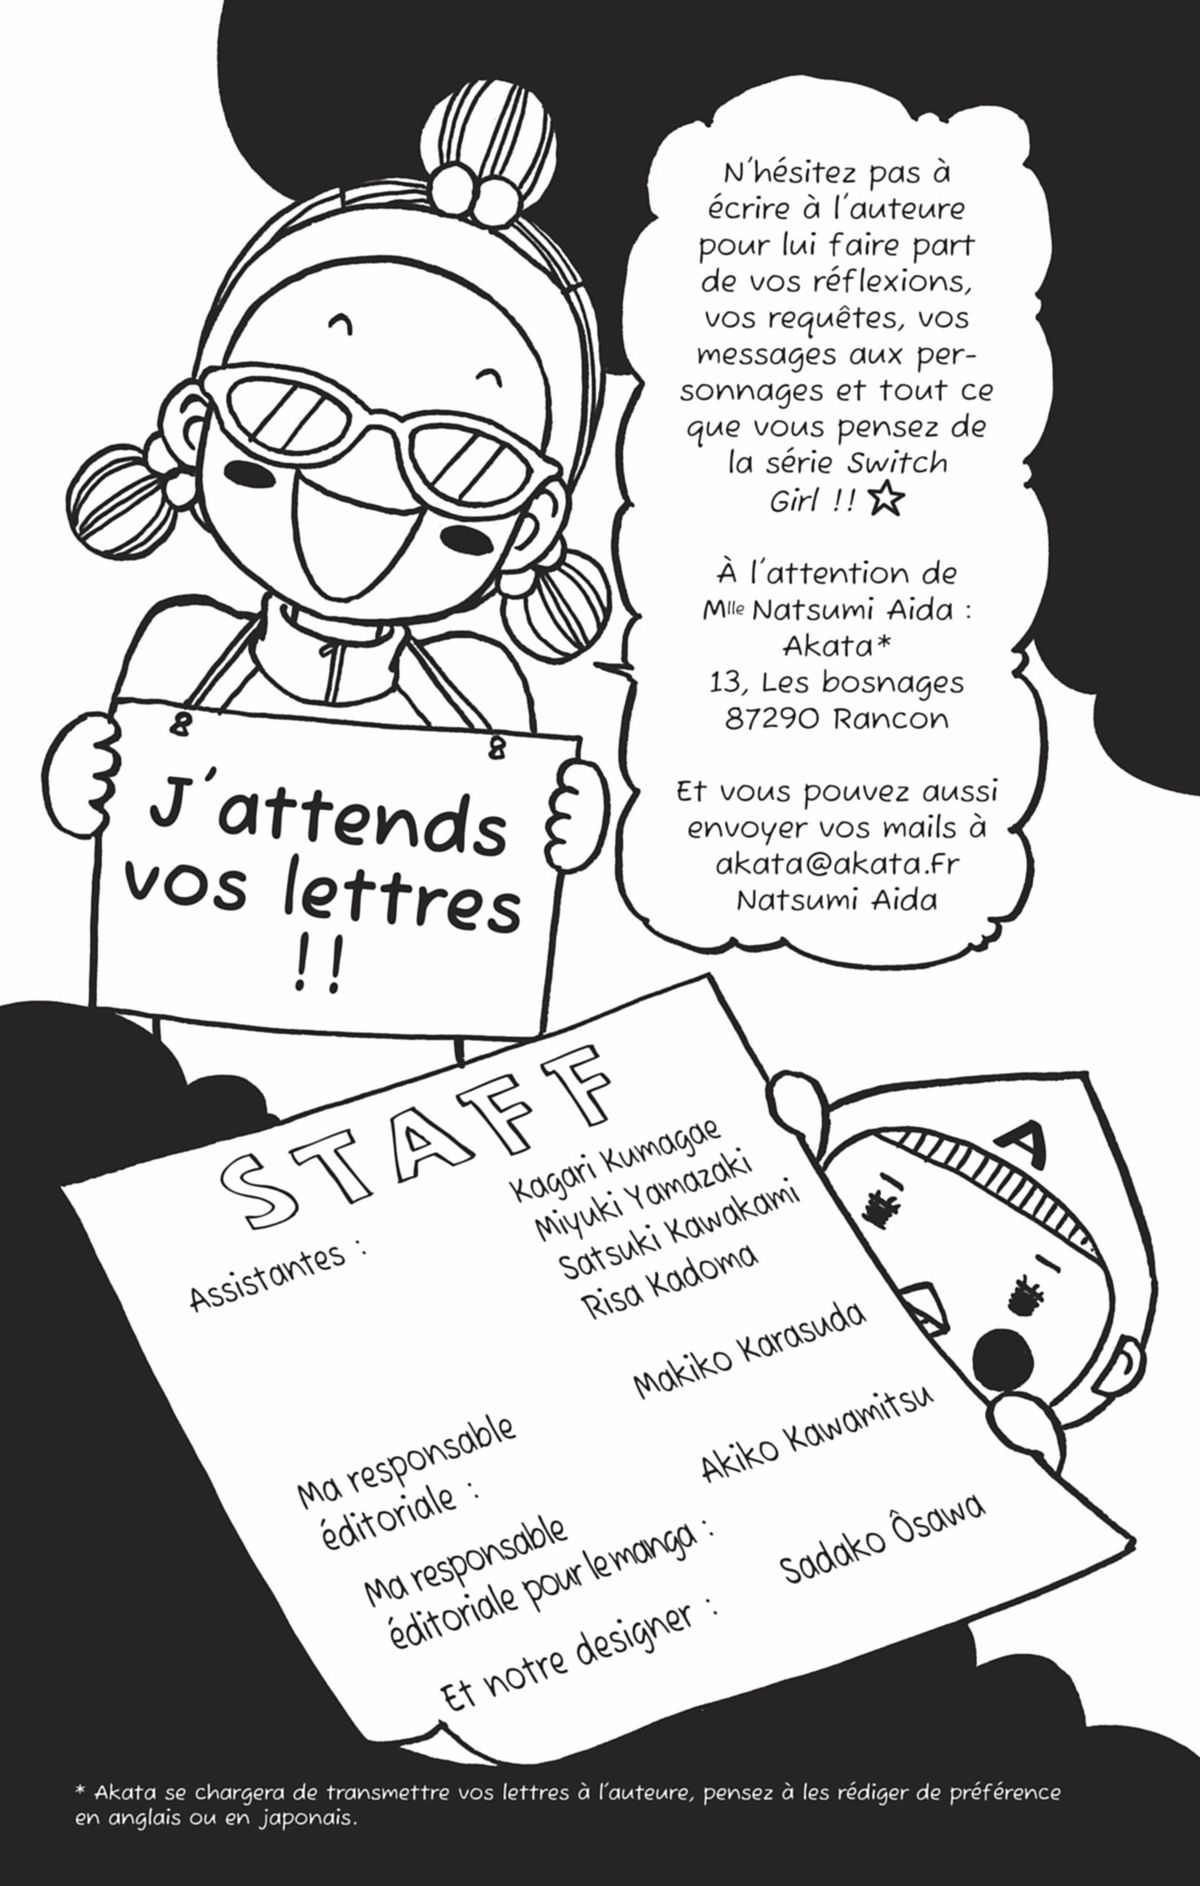 N'hésitez pas à
écrire à l'auteure
pour lui faire part
de vos réflexions,
vos requêtes, vos
messages aux per-
sonnages et tout ce
que vous pensez de
la série Switch
Girl !! ☆
À l'attention de
Mlle Natsumi Aida :
Akata*
13, Les bosnages
87290 Rancon
Et vous pouvez aussi
envoyer vos mails à
akata@akata.fr
Natsumi Aida
J'attends
vos lettres
!!
STAFF
Assistantes :
Kagari Kumagae
Miyuki Yamazaki
Satsuki Kawakami
Risa Kadoma
Ma responsable
éditoriale :
Makiko Karasuda
Ma responsable
éditoriale pour le manga :
Akiko Kawamitsu
Et notre designer :
Sadako Ôsawa
A
* Akata se chargera de transmettre vos lettres à l'auteure, pensez à les rédiger de préférence
en anglais ou en japonais.